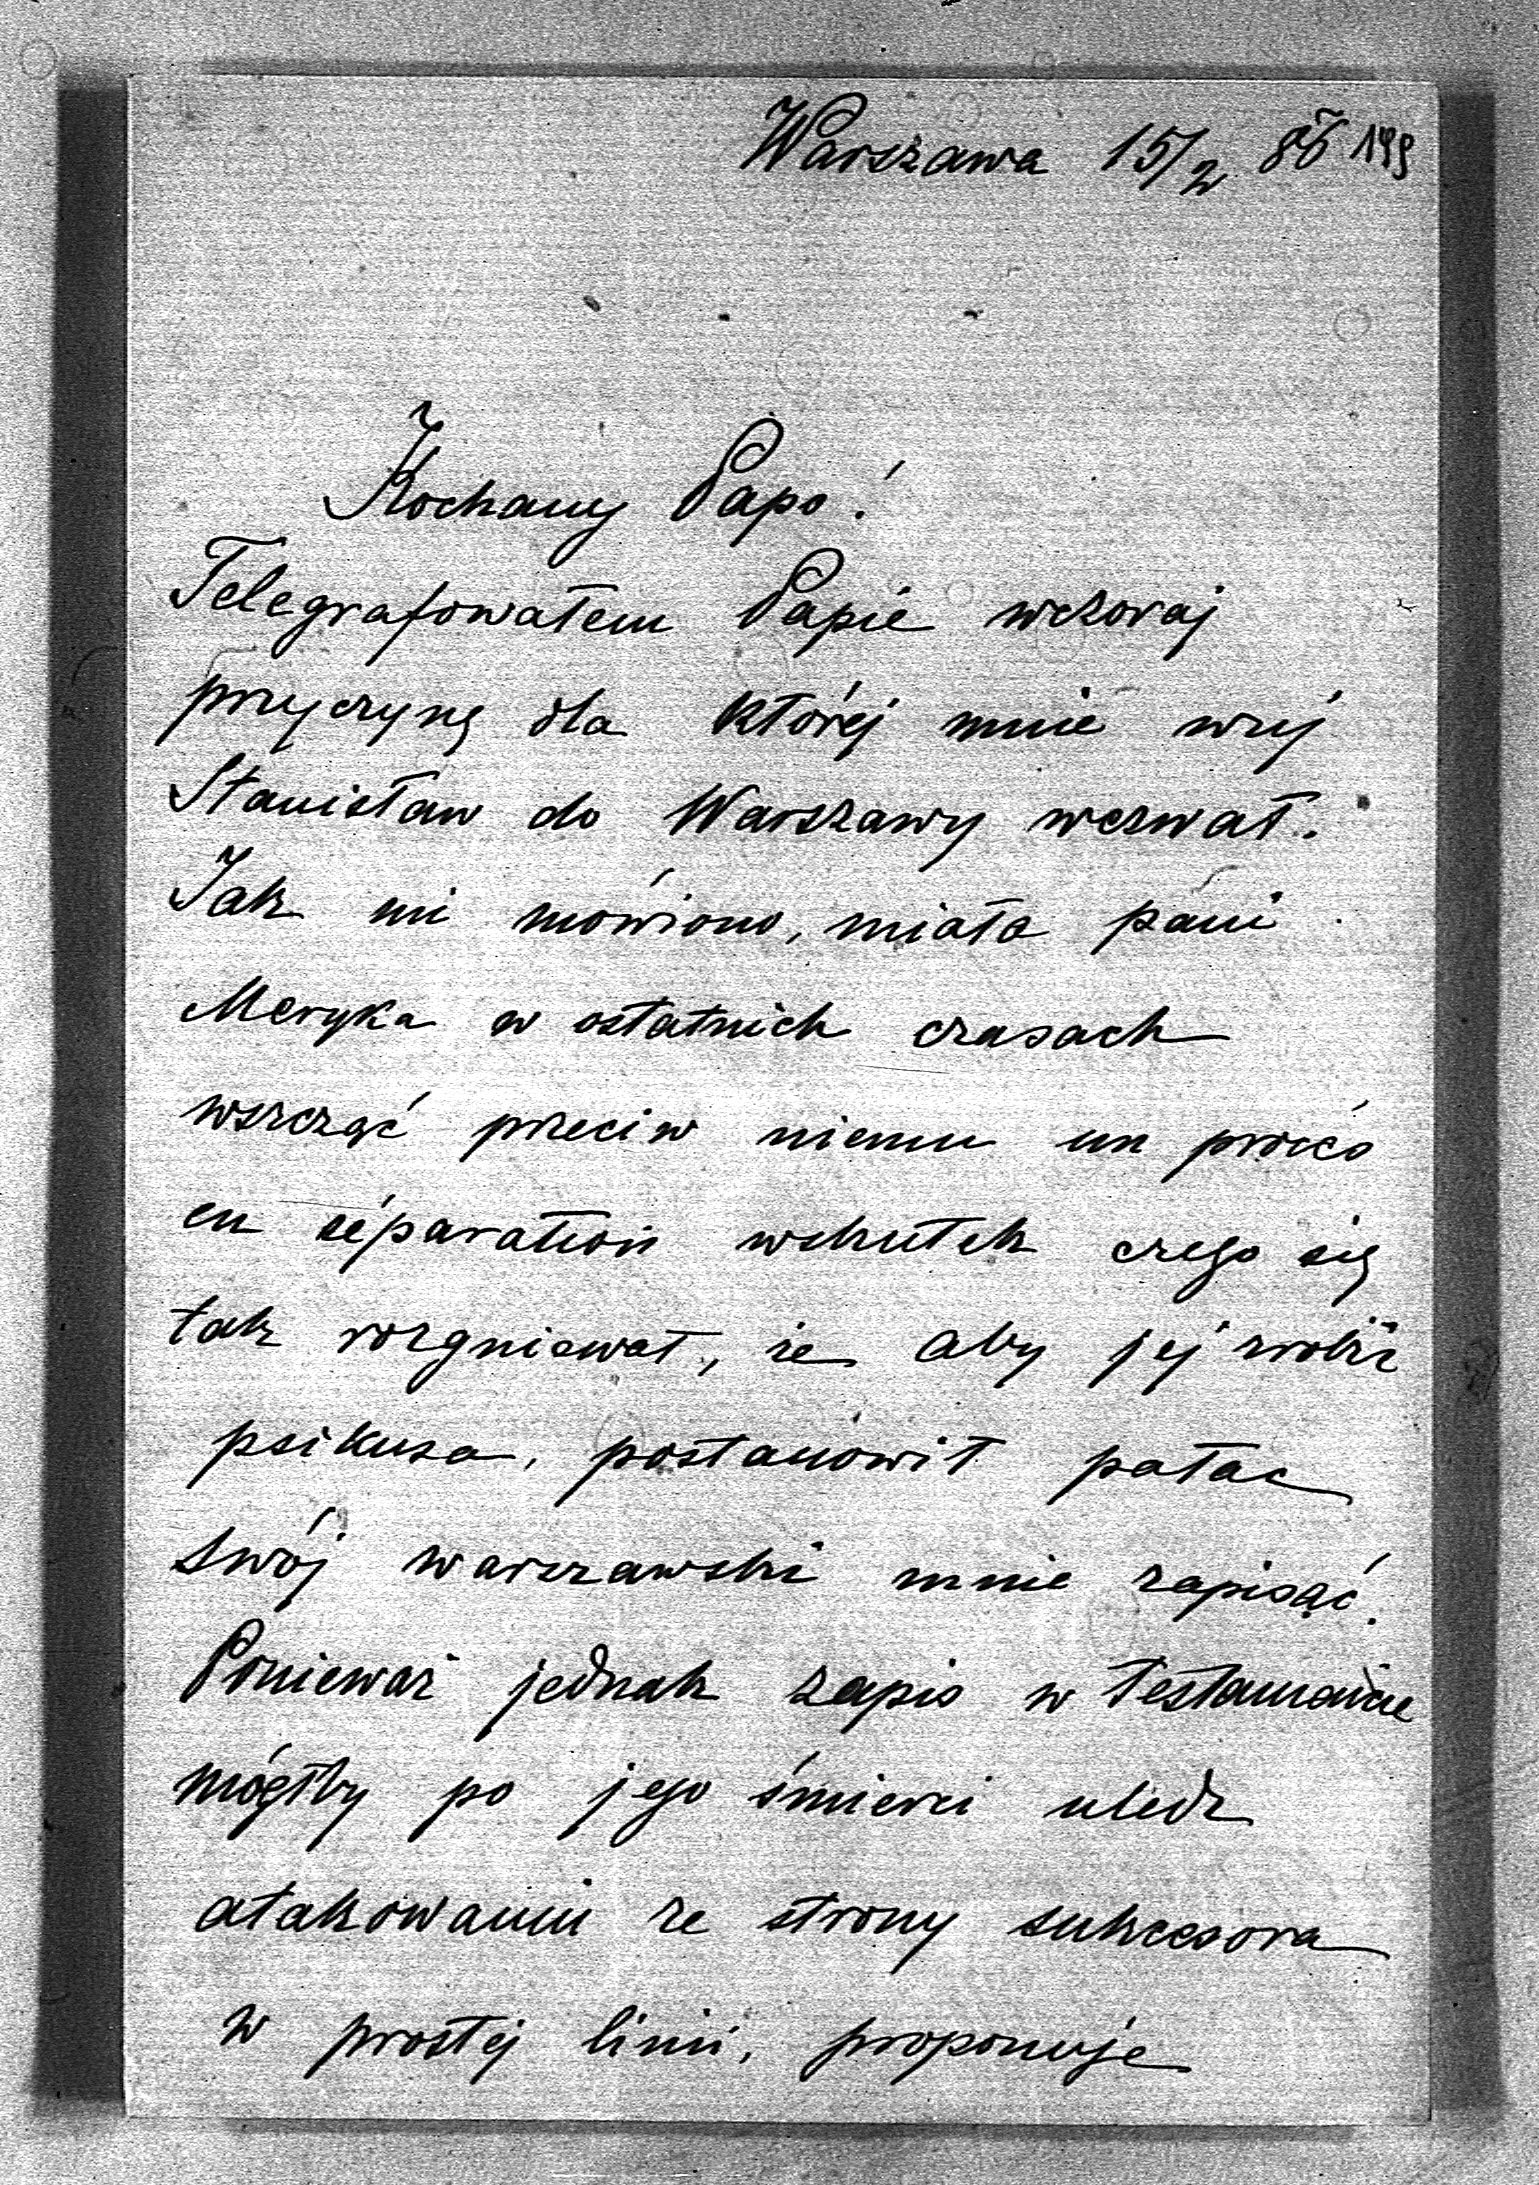 Warszawa 15/2 86 149
Kochany Papo!
Telegrafowałem Papie wczoraj
przyczynę dla której mnie wuj
Stanisław do Warszawy wezwał.
Jak mi mówiono, miała pani
Meryka w ostatnich czasach
wszcząć przeciw niemu un procès
en séparation wskutek czego się
tak rozgniewał, że aby jej zrobić
psikusa, postanowił pałac
swój warszawski mnie zapisąć.
Ponieważ jednak zapis w testamencie
mógłby po jego śmierci uledz
atakowaniu ze strony sukcesora
w prostej linii, proponuje